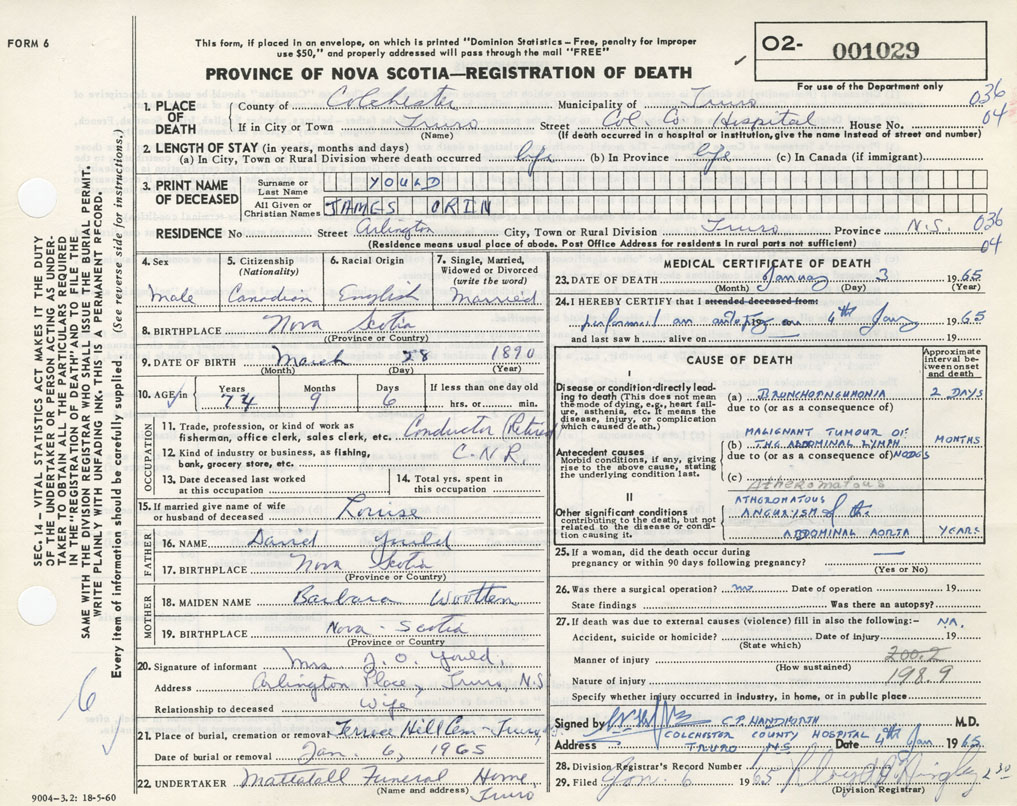 FORM 6
This form, if placed in an envelope, on which is printed "Dominion Statistics – Free, penalty for improper
use $50," and properly addressed will pass through the mail "FREE"
PROVINCE OF NOVA SCOTIA—REGISTRATION OF DEATH
O2- 001029
For use of the Department only
1. PLACE OF DEATH
County of Colchester Municipality of Truro 036
If in City or Town Truro Street Col. Co. Hospital House No. 04
(Name) (If death occurred in a hospital or institution, give the name instead of street and number)
2. LENGTH OF STAY (in years, months and days)
(a) In City, Town or Rural Division where death occurred life (b) In Province life (c) In Canada (if immigrant)
3. PRINT NAME OF DECEASED
Surname or Last Name YOULD
All Given or Christian Names JAMES ORIN
RESIDENCE No Street Arlington City, Town or Rural Division Truro Province N.S. 036
(Residence means usual place of abode. Post Office Address for residents in rural parts not sufficient) 04
4. Sex
Male
5. Citizenship (Nationality)
Canadian
6. Racial Origin
English
7. Single, Married, Widowed or Divorced (write the word)
Married
8. BIRTHPLACE Nova Scotia
(Province or Country)
9. DATE OF BIRTH March 28 1890
(Month) (Day) (Year)
10. AGE Years 74 Months 9 Days 6 If less than one day old hrs. or min.
OCCUPATION
11. Trade, profession, or kind of work as fisherman, office clerk, sales clerk, etc. Conductor (Retired
12. Kind of industry or business, as fishing, bank, grocery store, etc. C.N.R.
13. Date deceased last worked at this occupation
14. Total yrs. spent in this occupation
15. If married give name of wife or husband of deceased Louise
FATHER
16. NAME David Yould
17. BIRTHPLACE Nova Scotia
(Province or Country)
MOTHER
18. MAIDEN NAME Barbara Wootten
19. BIRTHPLACE Nova - Scotia
(Province or Country)
20. Signature of informant Mrs. J. O. Yould,
Address Arlington Place, Truro, N.S
Relationship to deceased Wife
21. Place of burial, cremation or removal Hill Cem - Truro
Date of burial or removal Jan. 6, 1965
22. UNDERTAKER Mattatall Funeral Home
(Name and address) Truro
9004-3.2: 18-5-60
MEDICAL CERTIFICATE OF DEATH
23. DATE OF DEATH January 3 1965
(Month) (Day) (Year)
24. I HEREBY CERTIFY that I attended deceased from:
performed an autopsy on 4th Jany 1965
and last saw h alive on 19
CAUSE OF DEATH
Approximate interval between onset and death
I
Disease or condition directly leading to death (This does not mean the mode of dying, e.g., heart failure, asthenia, etc. It means the disease, injury, or complication which caused death.)
(a) BRONCHOPNEUMONIA 2 DAYS
due to (or as a consequence of)
Antecedent causes
Morbid conditions, if any, giving rise to the above cause, stating the underlying condition last.
MALIGNANT TUMOUR OF
(b) THE ABDOMINAL LYMPH MONTHS
due to (or as a consequence of) NODES
(c) Atheromatous
II
Other significant conditions
contributing to the death, but not related to the disease or condition causing it.
ATHEROMATOUS
ANEURYSM of the
ABDOMINAL AORTA YEARS
25. If a woman, did the death occur during
pregnancy or within 90 days following pregnancy? —
(Yes or No)
26. Was there a surgical operation? no Date of operation 19
State findings Was there an autopsy?
27. If death was due to external causes (violence) fill in also the following:- NA.
Accident, suicide or homicide? Date of injury 19
(State which)
Manner of injury 200.2
(How sustained)
Nature of injury 198.9
Specify whether injury occurred in industry, in home, or in public place
Signed by C.P. HANDFORTH M.D.
Address COLCHESTER COUNTY HOSPITAL
TRURO NS Date 4th Jan 1965
28. Division Registrar's Record Number
29. Filed Jan. 6 1965
(Division Registrar)
SEC. 14 – VITAL STATISTICS ACT MAKES IT THE DUTY
OF THE UNDERTAKER OR PERSON ACTING AS UNDER-
TAKER TO OBTAIN ALL THE PARTICULARS REQUIRED
IN THE "REGISTRATION OF DEATH" AND TO FILE THE
SAME WITH THE DIVISION REGISTRAR WHO SHALL ISSUE THE BURIAL PERMIT.
WRITE PLAINLY WITH UNFADING INK. THIS IS A PERMANENT RECORD.
Every item of information should be carefully supplied. (See reverse side for instructions.)
6